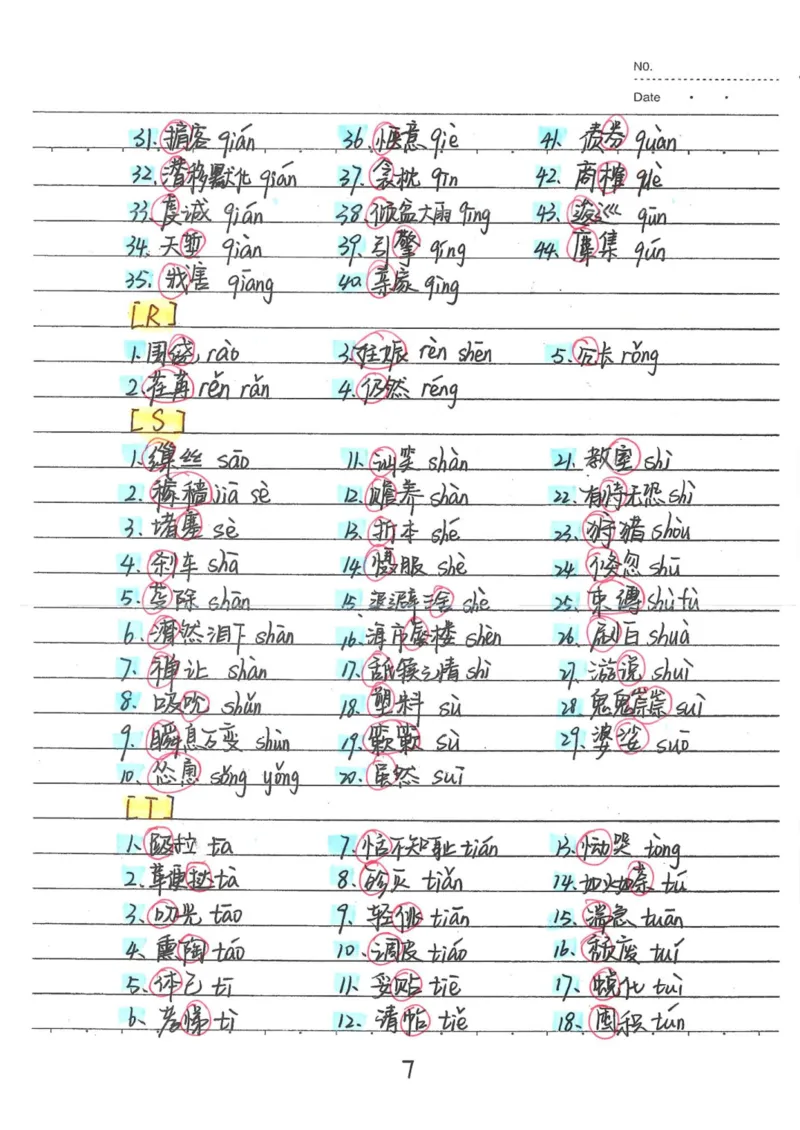 NO.
Date
31. 掮客 qián 36. 惬意 qiè 41. 债券 quàn
32. 潜移默化 qián 37. 衾枕 qīn 42. 商榷 què
33. 虔诚 qián 38. 倾盆大雨 qīng 43. 逡巡 qūn
34. 天堑 qiàn 39. 引擎 qíng 44. 麇集 qún
35. 戕害 qiāng 40. 亲家 qìng
[R]
1. 围绕 rào 3. 妊娠 rèn shēn 5. 冗长 rǒng
2. 荏苒 rěn rǎn 4. 仍然 réng
[S]
1. 缫丝 sāo 11. 讪笑 shàn 21. 教室 shì
2. 稼穑 jià sè 12. 赡养 shàn 22. 有恃无恐 shì
3. 堵塞 sè 13. 折本 shé 23. 狩猎 shòu
4. 刹车 shā 14. 慑服 shè 24. 倏忽 shū
5. 芟除 shān 15. 退避三舍 shè 25. 束缚 shù fù
6. 潸然泪下 shān 16. 海市蜃楼 shèn 26. 刷白 shuà
7. 禅让 shàn 17. 舐犊之情 shì 27. 游说 shuì
8. 吸吮 shǔn 18. 塑料 sù 28. 鬼鬼祟祟 suì
9. 瞬息万变 shùn 19. 簌簌 sù 29. 婆娑 suō
10. 怂恿 sǒng yǒng 20. 虽然 suī
[T]
1. 趿拉 tā 7. 恬不知耻 tián 13. 恸哭 tòng
2. 鞭挞 tà 8. 殄灭 tiǎn 14. 如火如荼 tú
3. 叨光 tāo 9. 轻佻 tiān 15. 湍急 tuān
4. 熏陶 táo 10. 调皮 tiáo 16. 颓废 tuí
5. 体己 tī 11. 妥贴 tiē 17. 蜕化 tuì
6. 孝悌 tì 12. 请帖 tiě 18. 囤积 tún
7